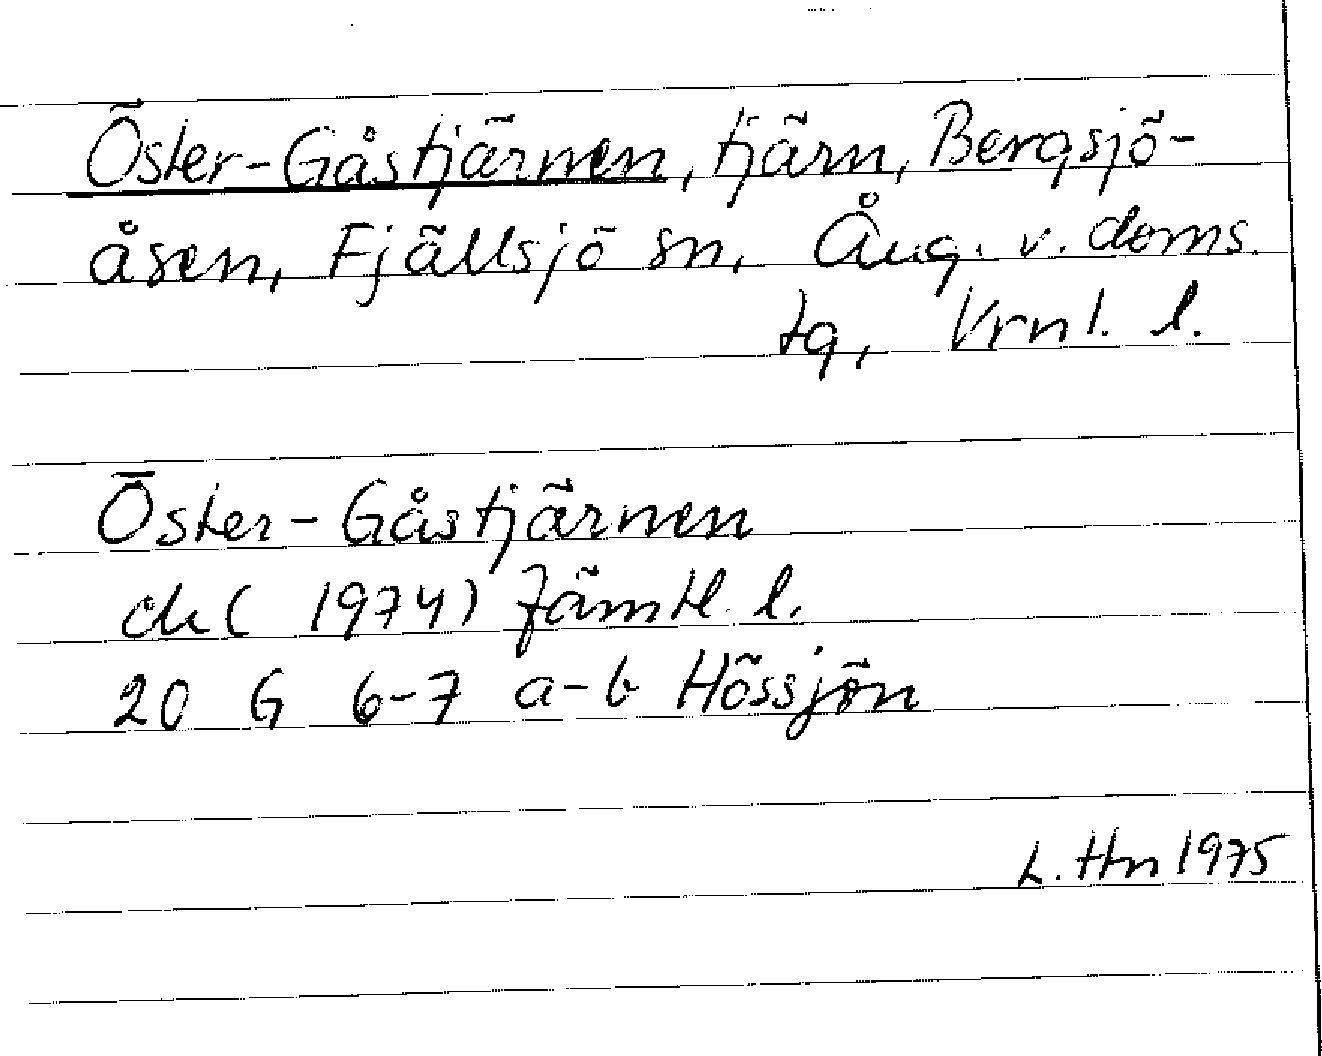 Öster-Gåstjärnen, tjärn, Bergsjö-
åsen, Fjällsjö sn, Ång. v. doms.
tg, Vrnl. l.
Öster-Gåstjärnen
ek (1974) Jämtl. l.
20 G 6-7 a-b Hössjön
L. Hn 1975